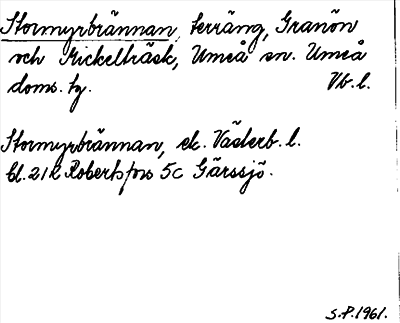 Stormyrbrännan, terräng, Granön
och Mickelträsk, Umeå sn. Umeå
doms. tg. Vb. l.
Stormyrbrännan, ek. Västerb. l.
bl. 21K Robertsfors 5c Gärssjö.
S.P. 1961.